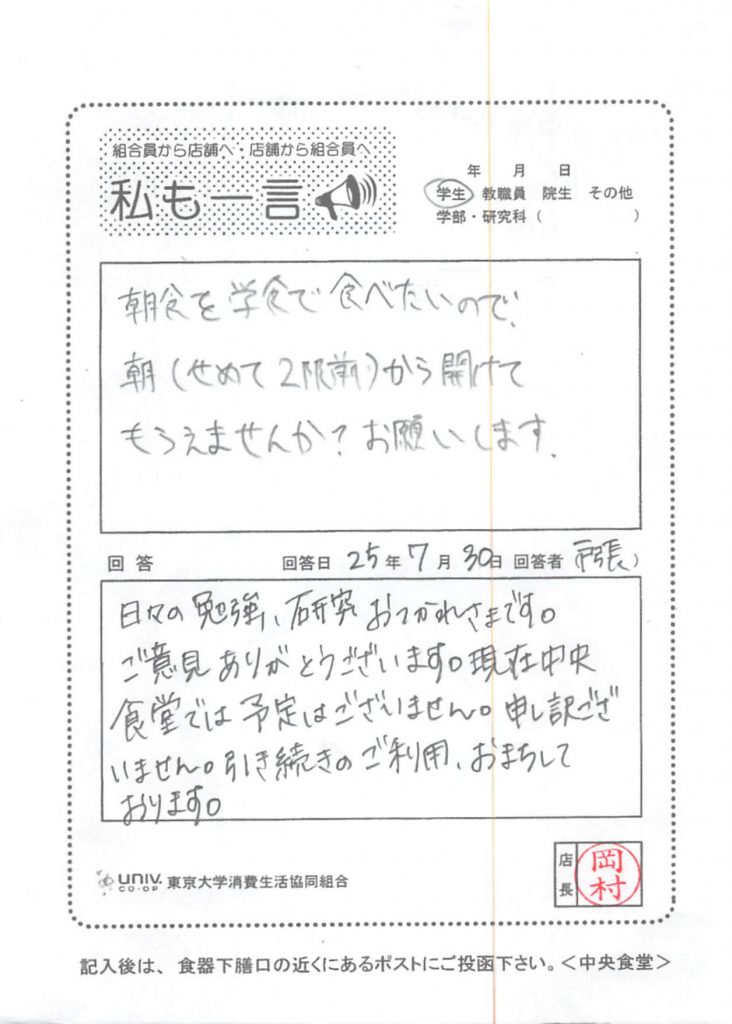 組合員から店舗へ・店舗から組合員へ
私も一言
年 月 日
学生 教職員 院生 その他
学部・研究科( )
朝食を学食で食べたいので、
朝(せめて2限前)から開けて
もらえませんか?お願いします.
回答 回答日 25年7月30日 回答者(戸張)
日々の勉強、研究おつかれさまです。
ご意見ありがとうございます。現在中央
食堂では予定はございません。申し訳ござ
いません。引き続きのご利用、おまちして
おります。
UNIV. CO-OP 東京大学消費生活協同組合
店長 岡村
記入後は、食器下膳口の近くにあるポストにご投函下さい。<中央食堂>